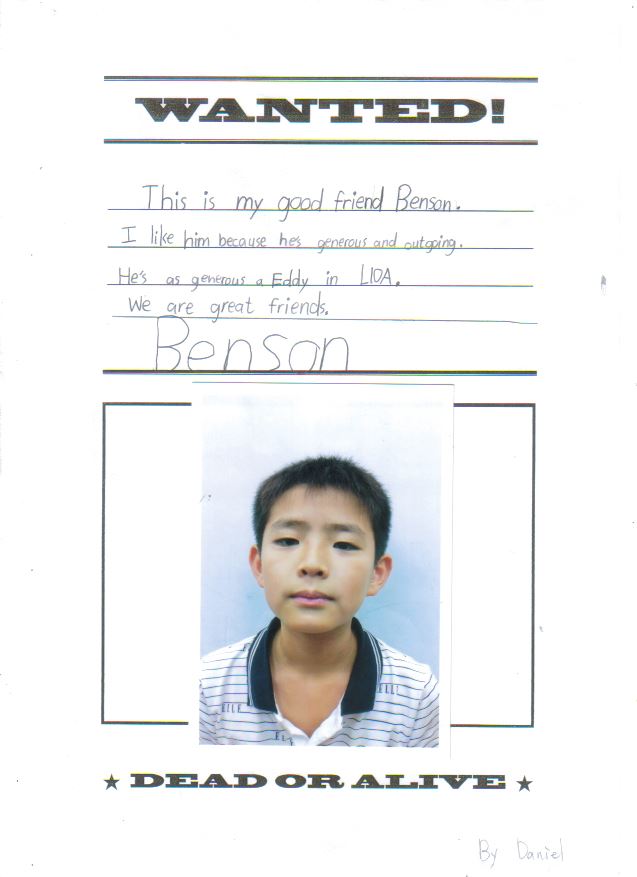 WANTED!
This is my good friend Benson.
I like him because he's generous and outgoing.
He's as generous a Eddy in L10A.
We are great friends.
Benson
★ DEAD OR ALIVE ★
By Daniel